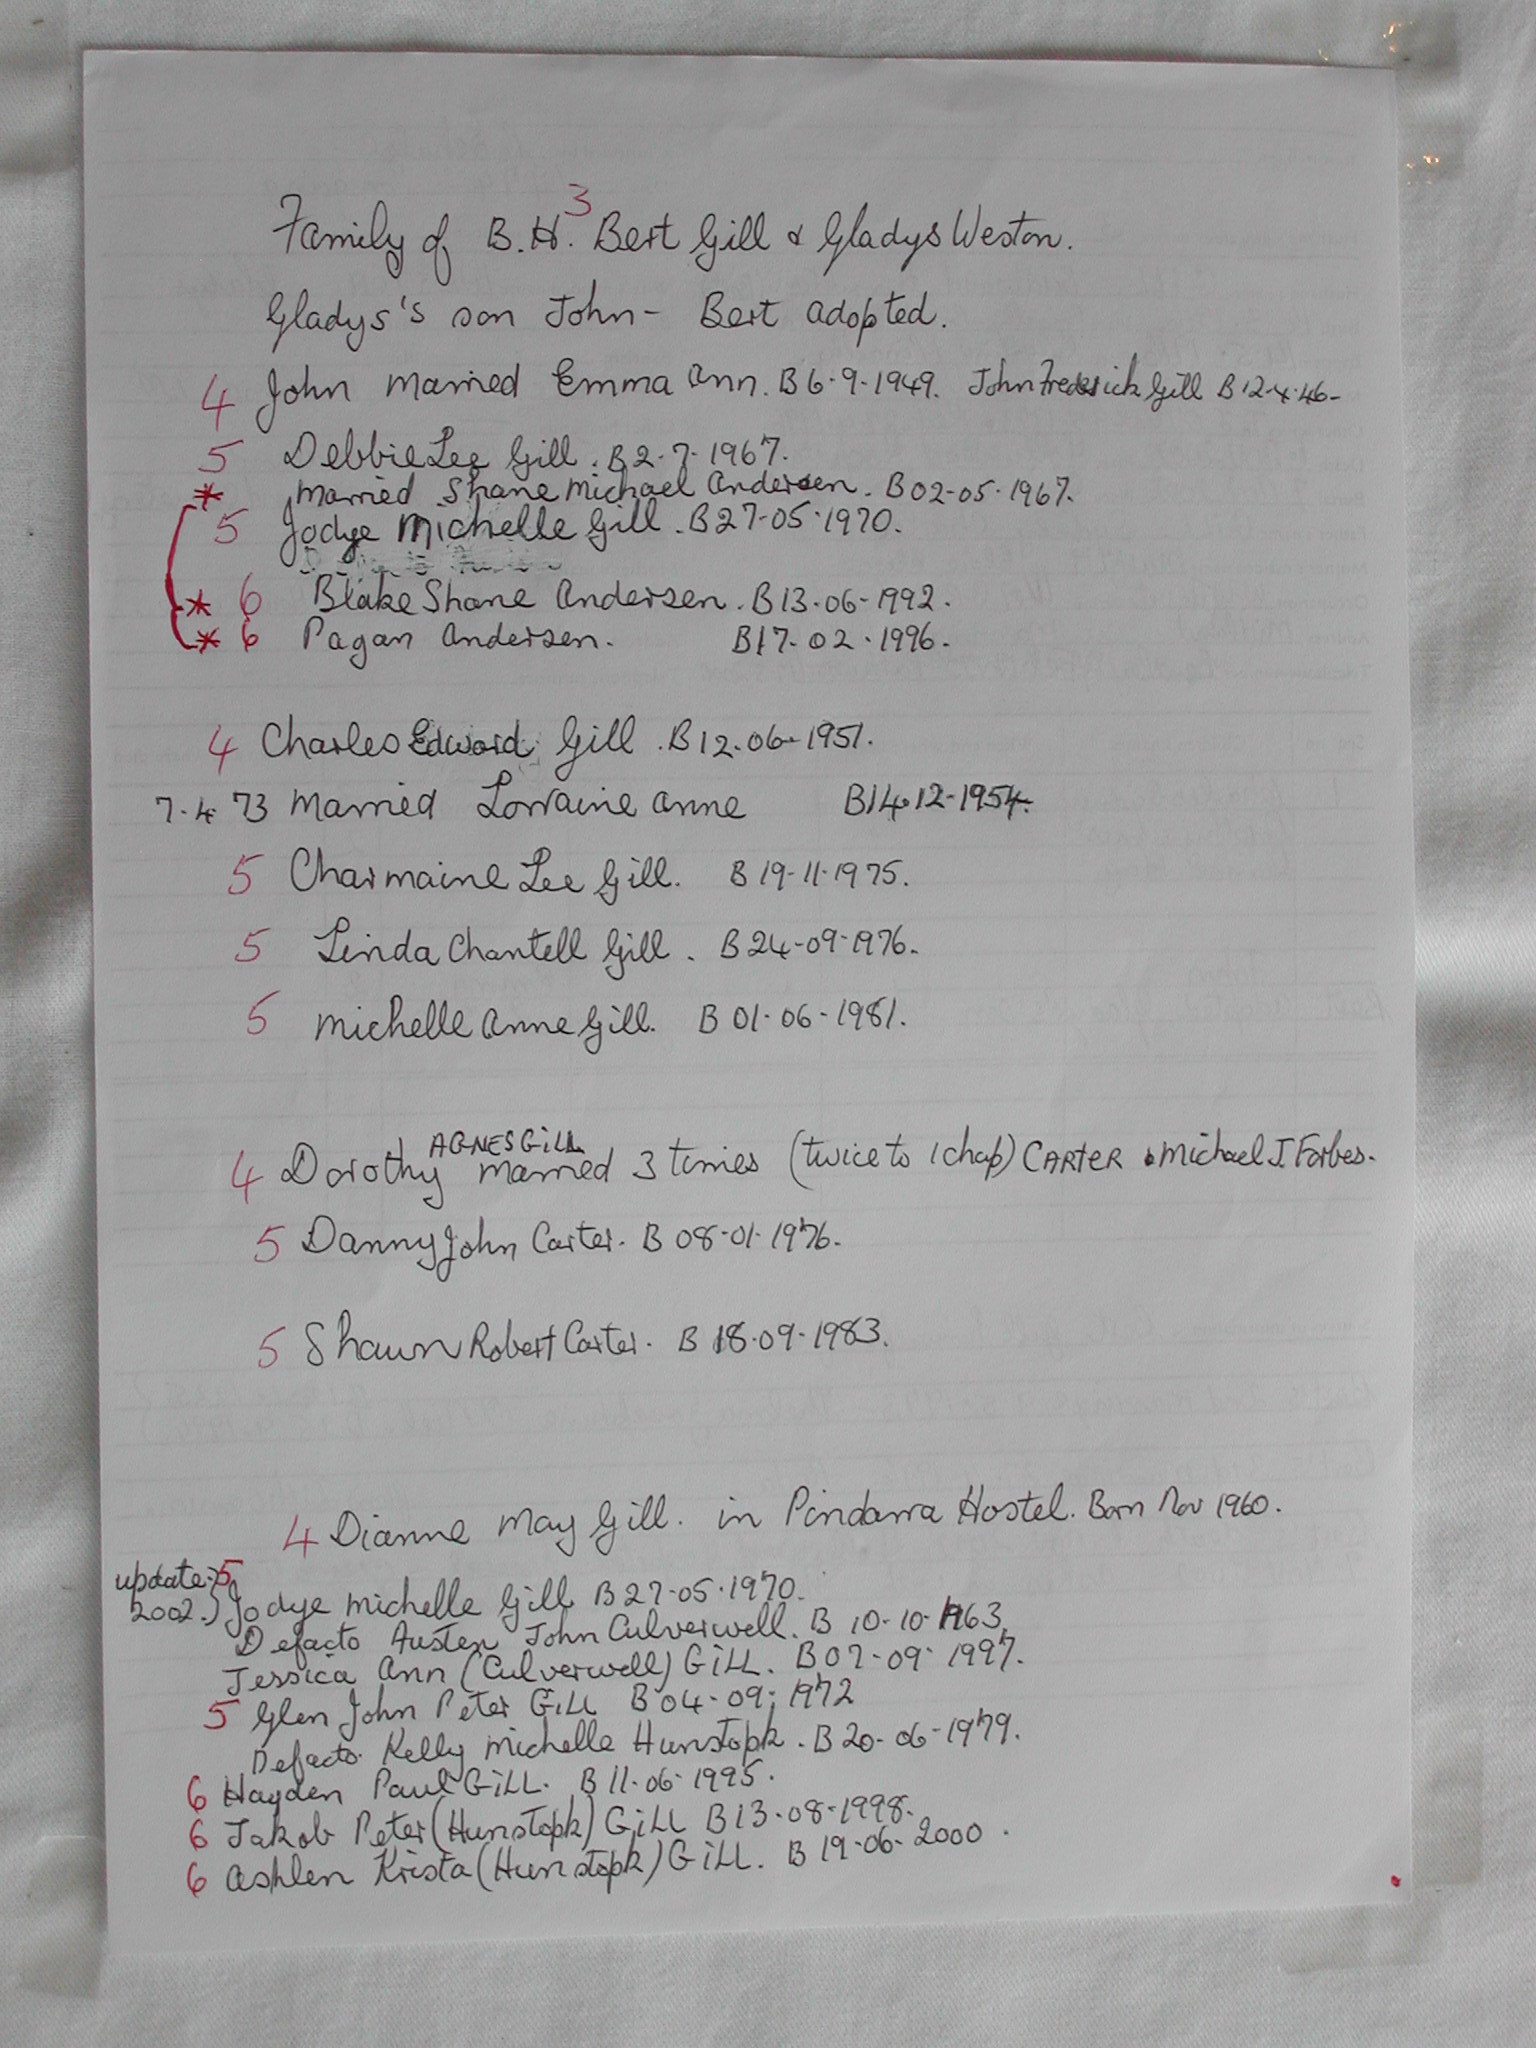 3
Family of B.H. Bert Gill & Gladys Weston.
Gladys's son John - Bert adopted.
4 John married Emma Ann. B 6-9-1949. John Frederick Gill B 12-4-46-
5 Debbie Lee Gill. B 2-7-1967.
* Married Shane Michael Andersen. B 02-05-1967.
5 Jodye Michelle Gill. B 27-05-1970.
* 6 Blake Shane Andersen. B 13-06-1992.
* 6 Pagan Andersen. B 17-02-1996.
4 Charles Edward Gill. B 12-06-1951.
7-4-73 Married Lorraine Anne B 14-12-1954.
5 Charmaine Lee Gill. B 19-11-1975.
5 Linda Chantell Gill. B 24-09-1976.
5 Michelle Anne Gill. B 01-06-1981.
AGNES GILL
4 Dorothy married 3 times (twice to 1 chap) CARTER & Michael J. Forbes.
5 Danny John Carter. B 08-01-1976.
5 Shawn Robert Carter. B 18-09-1983.
4 Dianne May Gill. in Pindarra Hostel. Born Nov 1960.
update 5
2002.) Jodye Michelle Gill B 27-05-1970.
Defacto Austen John Culverwell. B 10-10-1963.
Jessica Ann (Culverwell) GiLL. B 07-09-1997.
5 Glen John Peter GiLL B 04-09-1972
Defacto Kelly Michelle Hunstopk. B 20-06-1979.
6 Hayden Paul GiLL. B 11-06-1995.
6 Jakob Peter (Hunstopk) GiLL B 13-08-1998.
6 Ashlen Krista (Hunstopk) GiLL. B 19-06-2000.